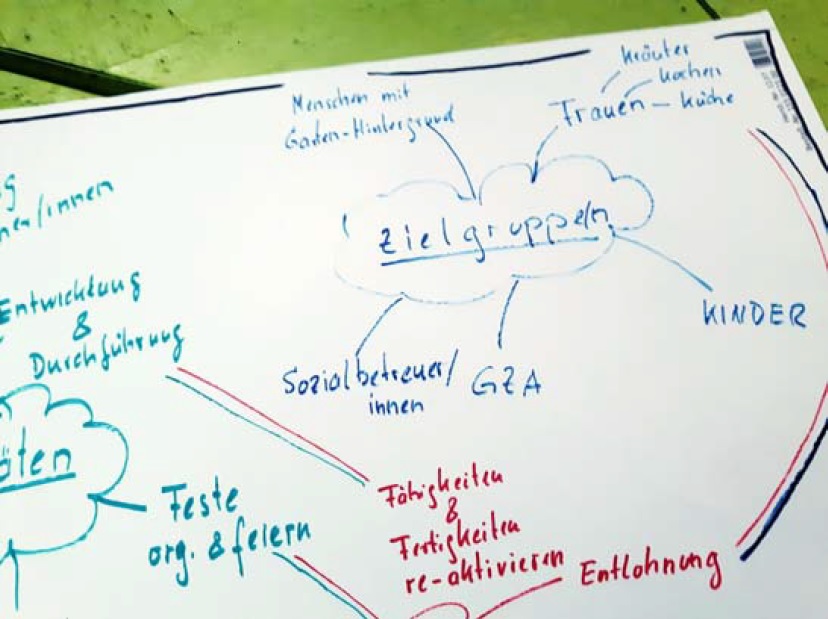 Kräuter
kochen
Frauen – Küche
Menschen mit
Garten-Hintergrund
Zielgruppe/n
KINDER
Sozialbetreuer/
innen
GZA
Entwicklung
&
Durchführung
Feste
org. & feiern
Fähigkeiten
&
Fertigkeiten
re-aktivieren
Entlohnung